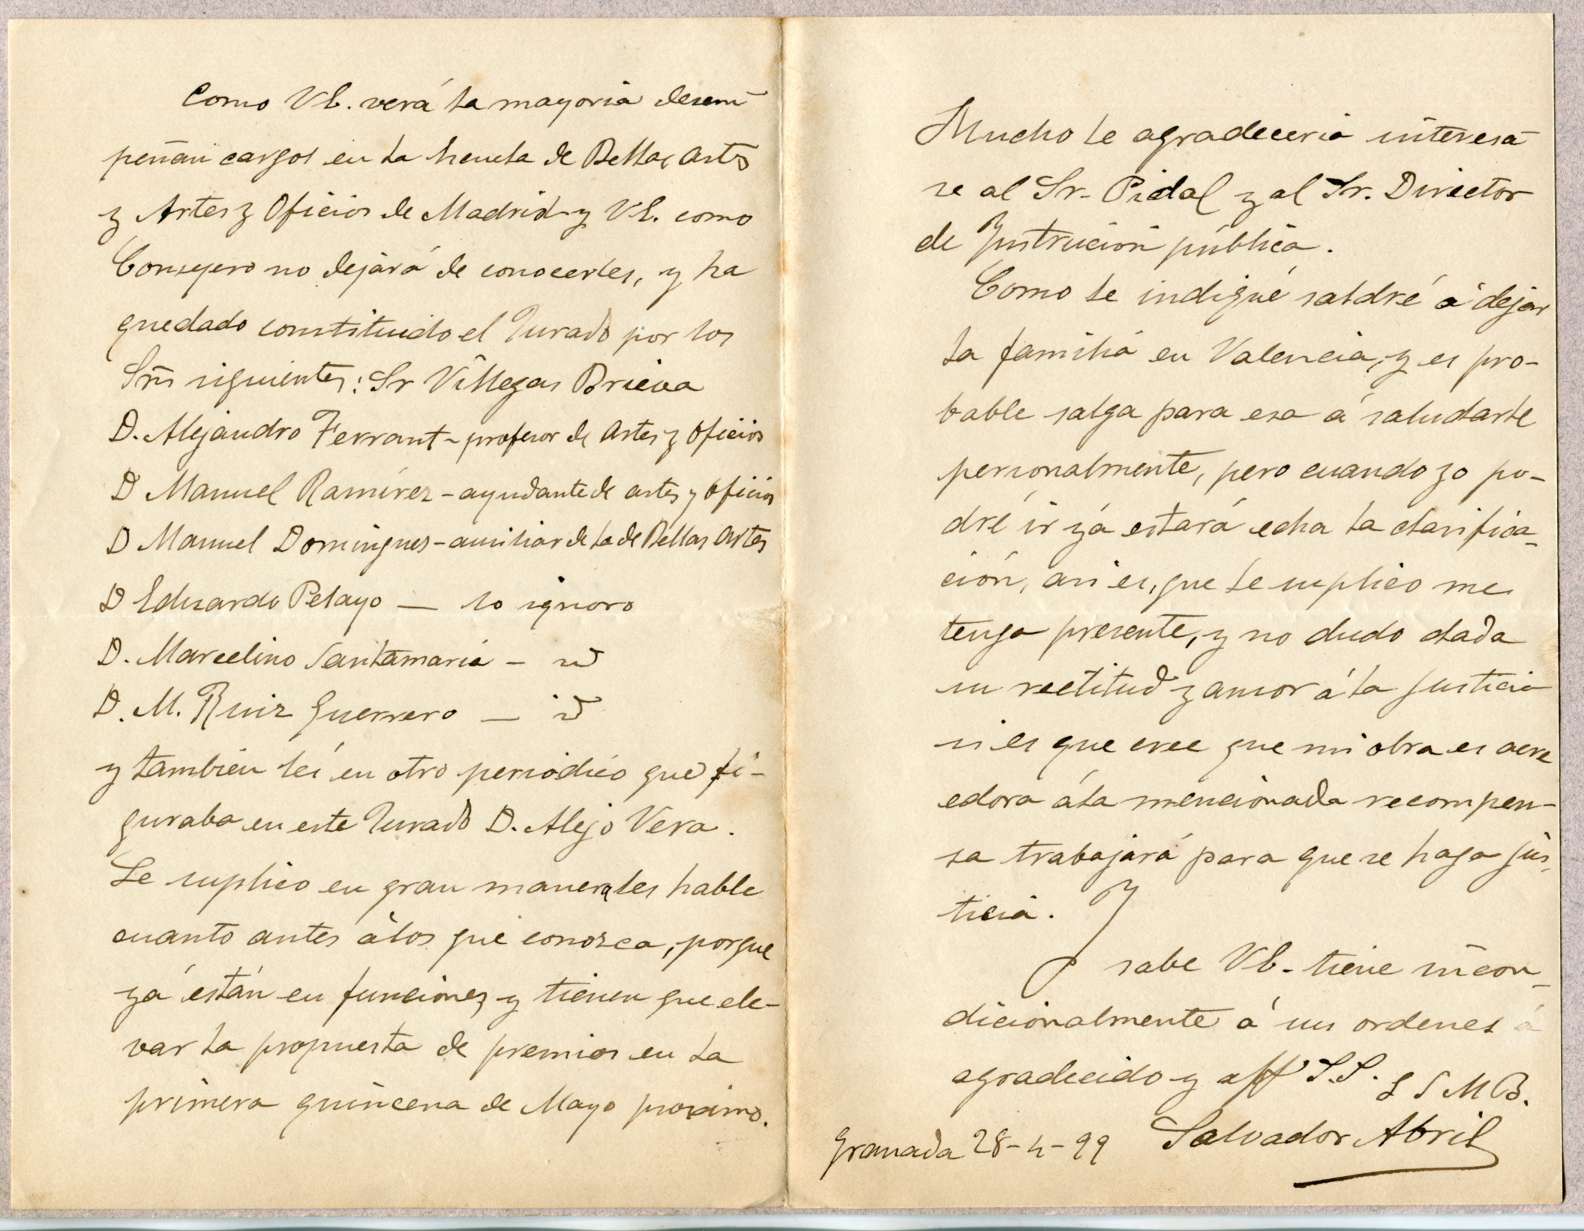 Como Vd. verá la mayoria desem-
peñan cargos en la Escuela de Bellas Artes
y Artes y Oficios de Madrid y Vd. como
Consejero no dejará de conocerles, y ha
quedado constituido el Jurado por los
Srs siguientes: Sr Villegas Brieva
D. Alejandro Ferrant - profesor de Artes y Oficios
D Manuel Ramírez - ayudante de artes y Oficios
D Manuel Domingues - auxiliar de la de Bellas Artes
D Eduardo Pelayo — lo ignoro
D. Marcelino Santamaria — id
D. M. Ruiz Guerrero — id
y también leí en otro periódico que fi-
guraba en este Jurado D. Alejo Vera.
Le suplico en gran manera les hable
cuanto antes á los que conozca, porque
yá están en funciones y tienen que ele-
var la propuesta de premios en la
primera quincena de Mayo proximo.
Mucho le agradeceria interesa-
se al Sr. Pidal y al Sr. Director
de Instrucion pública.
Como le indiqué saldré á dejar
la familia en Valencia, y es pro-
bable salga para esa á saludarle
personalmente, pero cuando yo po-
dré ir yá estará echa la clasifica-
ción, asi es, que le suplico me
tenga presente, y no dudo dada
su rectitud y amor á la justicia
si es que cree que mi obra es acre
edora á la mencionada recompen-
sa trabajará para que se haga jus-
ticia. Y
sabe Vd. tiene incon-
dicionalmente á sus ordenes á
agradecido y aff S.S. Q S M B.
Salvador Abril
Granada 28-4-99